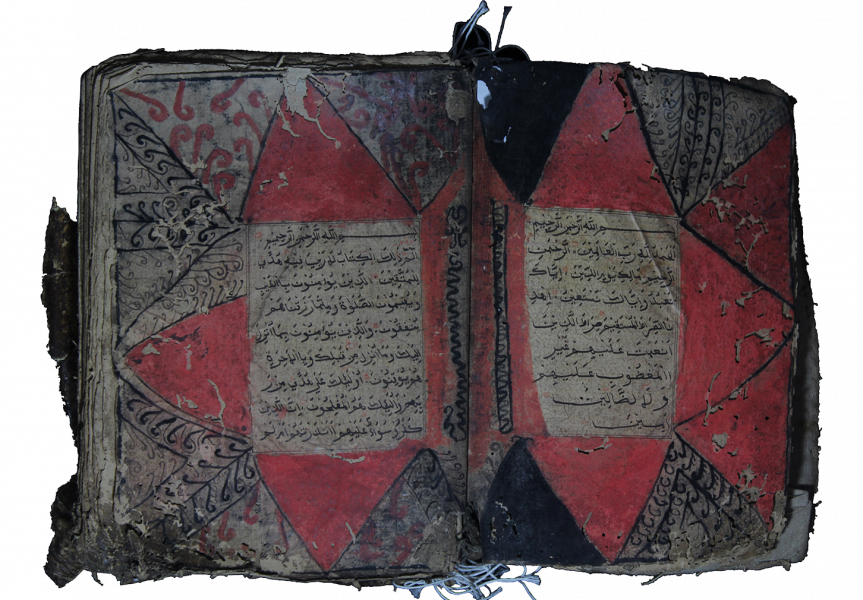 بسم الله الرحمن الرحيم
الحمد لله رب العالمين الرحمن
الرحيم مالك يوم الدين إياك
نعبد وإياك نستعين اهد
نا الصراط المستقيم صراط الذين
أنعمت عليهم غير
المغضوب عليهم
ولا لضالين
بسم الله الرحمن الرحيم
الم ذالك الكتاب لا ريب فيه هدى
للمتقين الذين يؤمنون بالغيب
ويقيمون الصلوة ومما رزقناهم
ينفقون والذين يؤمنون بما أنزل
إليك وما أنزل من قبلك وبالآخرة
هم يوقنون أولئك على هدى من ر
بهم وأولئك هم المفلحون إن الذين
كفروا سواء عليهم أأنذرتهم أم لم